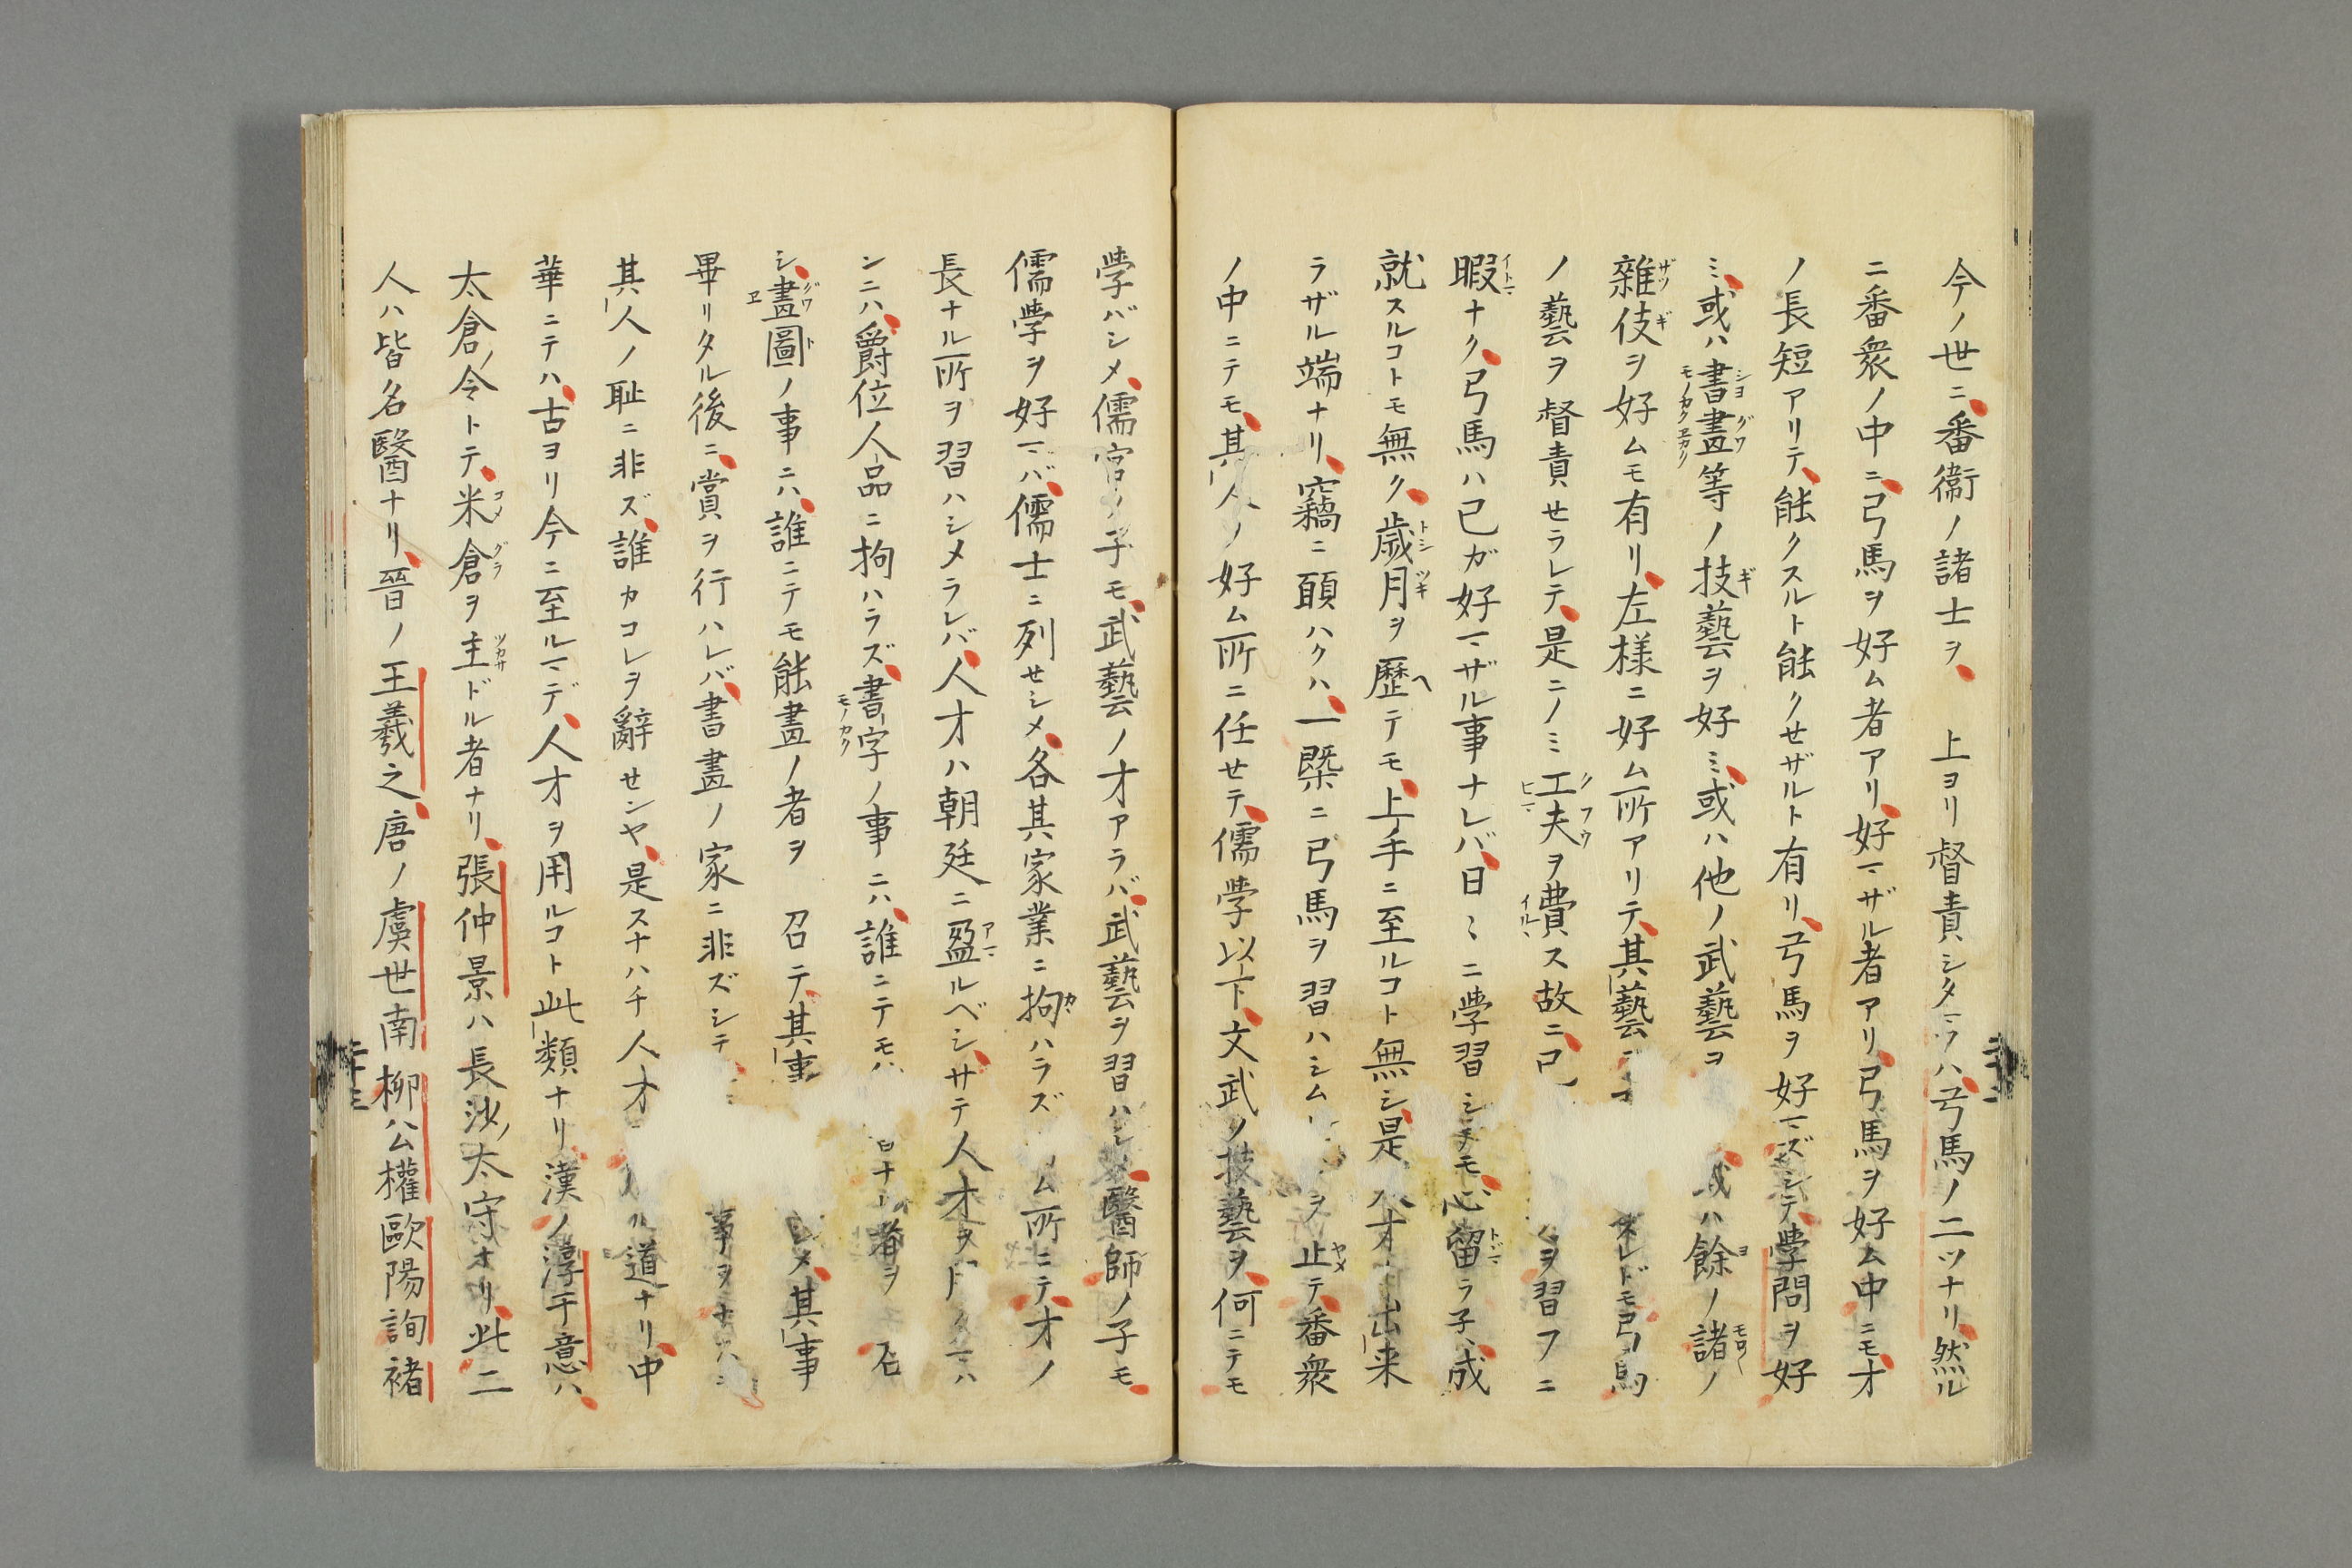 今ノ世ニ、番衞ノ諸士ヲ、 上ヨリ督責シタマフハ、弓馬ノ二ツナリ、然ル
ニ番衆ノ中ニ、弓馬ヲ好ム者アリ、好マザル者アリ、弓馬ヲ好ム中ニモ、才
ノ長短アリテ、能クスルト能クセザルト有リ、弓馬ヲ好マズシテ、學問ヲ好
ミ、或ハ書畫等ノ技藝ヲ好ミ、或ハ他ノ武藝ヲ 或ハ餘ノ諸ノ
雜伎ヲ好ムモ有リ、左様ニ好ム所アリテ、其藝 ネレドモ、弓馬
ノ藝ヲ督責セラレテ、是ニノミ工夫ヲ費ス故ニ、己 ヲ習フニ
暇ナク、弓馬ハ己ガ好マザル事ナレバ、日〻ニ學習シテモ、心留ラ子、成
就スルコトモ無ク、歲月ヲ歷テモ、上手ニ至ルコト無シ、是人才ノ出来
ラザル端ナリ、竊ニ願ハクハ、一槩ニ弓馬ヲ習ハシム ヲ止テ、番衆
ノ中ニテモ、其人ノ好ム所ニ任せテ、儒學以下、文武ノ技藝ヲ、何ニテモ
學バシメ、儒官ノ子モ、武藝ノ才アラバ、武藝ヲ習ハシメ、醫師ノ子モ、
儒學ヲ好マバ、儒士ニ列せシメ、各其家業ニ拘ハラズ ム所ニテ、才ノ
長ナル所ヲ習ハシメラレバ、人才ハ朝廷ニ盈ルベシ、サテ人才ヲ ハ
ンニハ、爵位人品ニ拘ハラズ、書字ノ事ニハ、誰ニテモ 者ヲ 召
シ、畫圖ノ事ニハ、誰ニテモ能畫ノ者ヲ 召テ、其事 シメ、其事
畢リタル後ニ、賞ヲ行ハレバ、書畫ノ家ニ非ズシテ 事ヲナ
其人ノ耻ニ非ズ、誰カコレヲ辭せンヤ、是スナハチ人才 ル道ナリ、中
華ニテハ、古ヨリ今ニ至ルマデ、人才ヲ用ルコト此類ナリ、漢ノ淳于意ハ、
太倉ノ令トテ、米倉ヲ主ドル者ナリ、張仲景ハ長沙ノ太守ナリ、此二
人ハ皆名醫ナリ、晉ノ王羲之、唐ノ虞世南柳公權歐陽詢褚